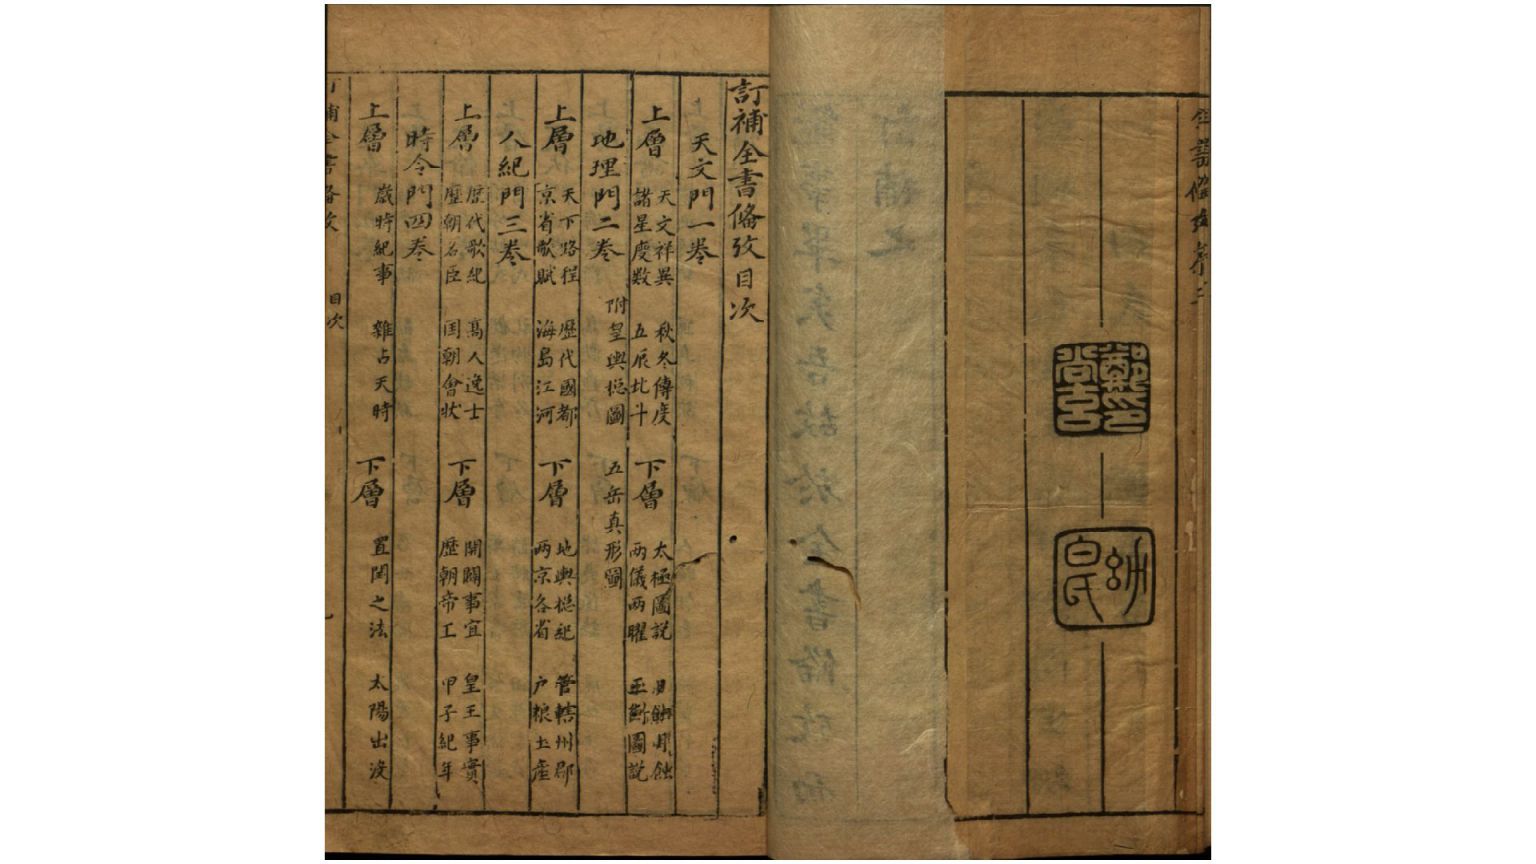 鄭氏
尚玄
幼
白氏
訂補全書備攷目次
天文門一卷
上層 天文祥異 諸星度數 秋冬傳度 五辰北斗 下層 太極圖說 兩儀兩曜 日蝕月蝕 玉衡圖說
地理門二卷 附皇輿總圖 五岳真形圖
上層 天下路程 京省歌賦 歷代國都 海島江河 下層 地輿總紀 兩京各省 管轄州郡 户粮土產
人紀門三卷
上層 歷代歌紀 歷朝名臣 高人逸士 国朝會狀 下層 開闢事宜 歷朝帝王 皇王事實 甲子紀年
時令門四卷
上層 歲時紀事 雜占天時 下層 置閏之法 太陽出没
目次